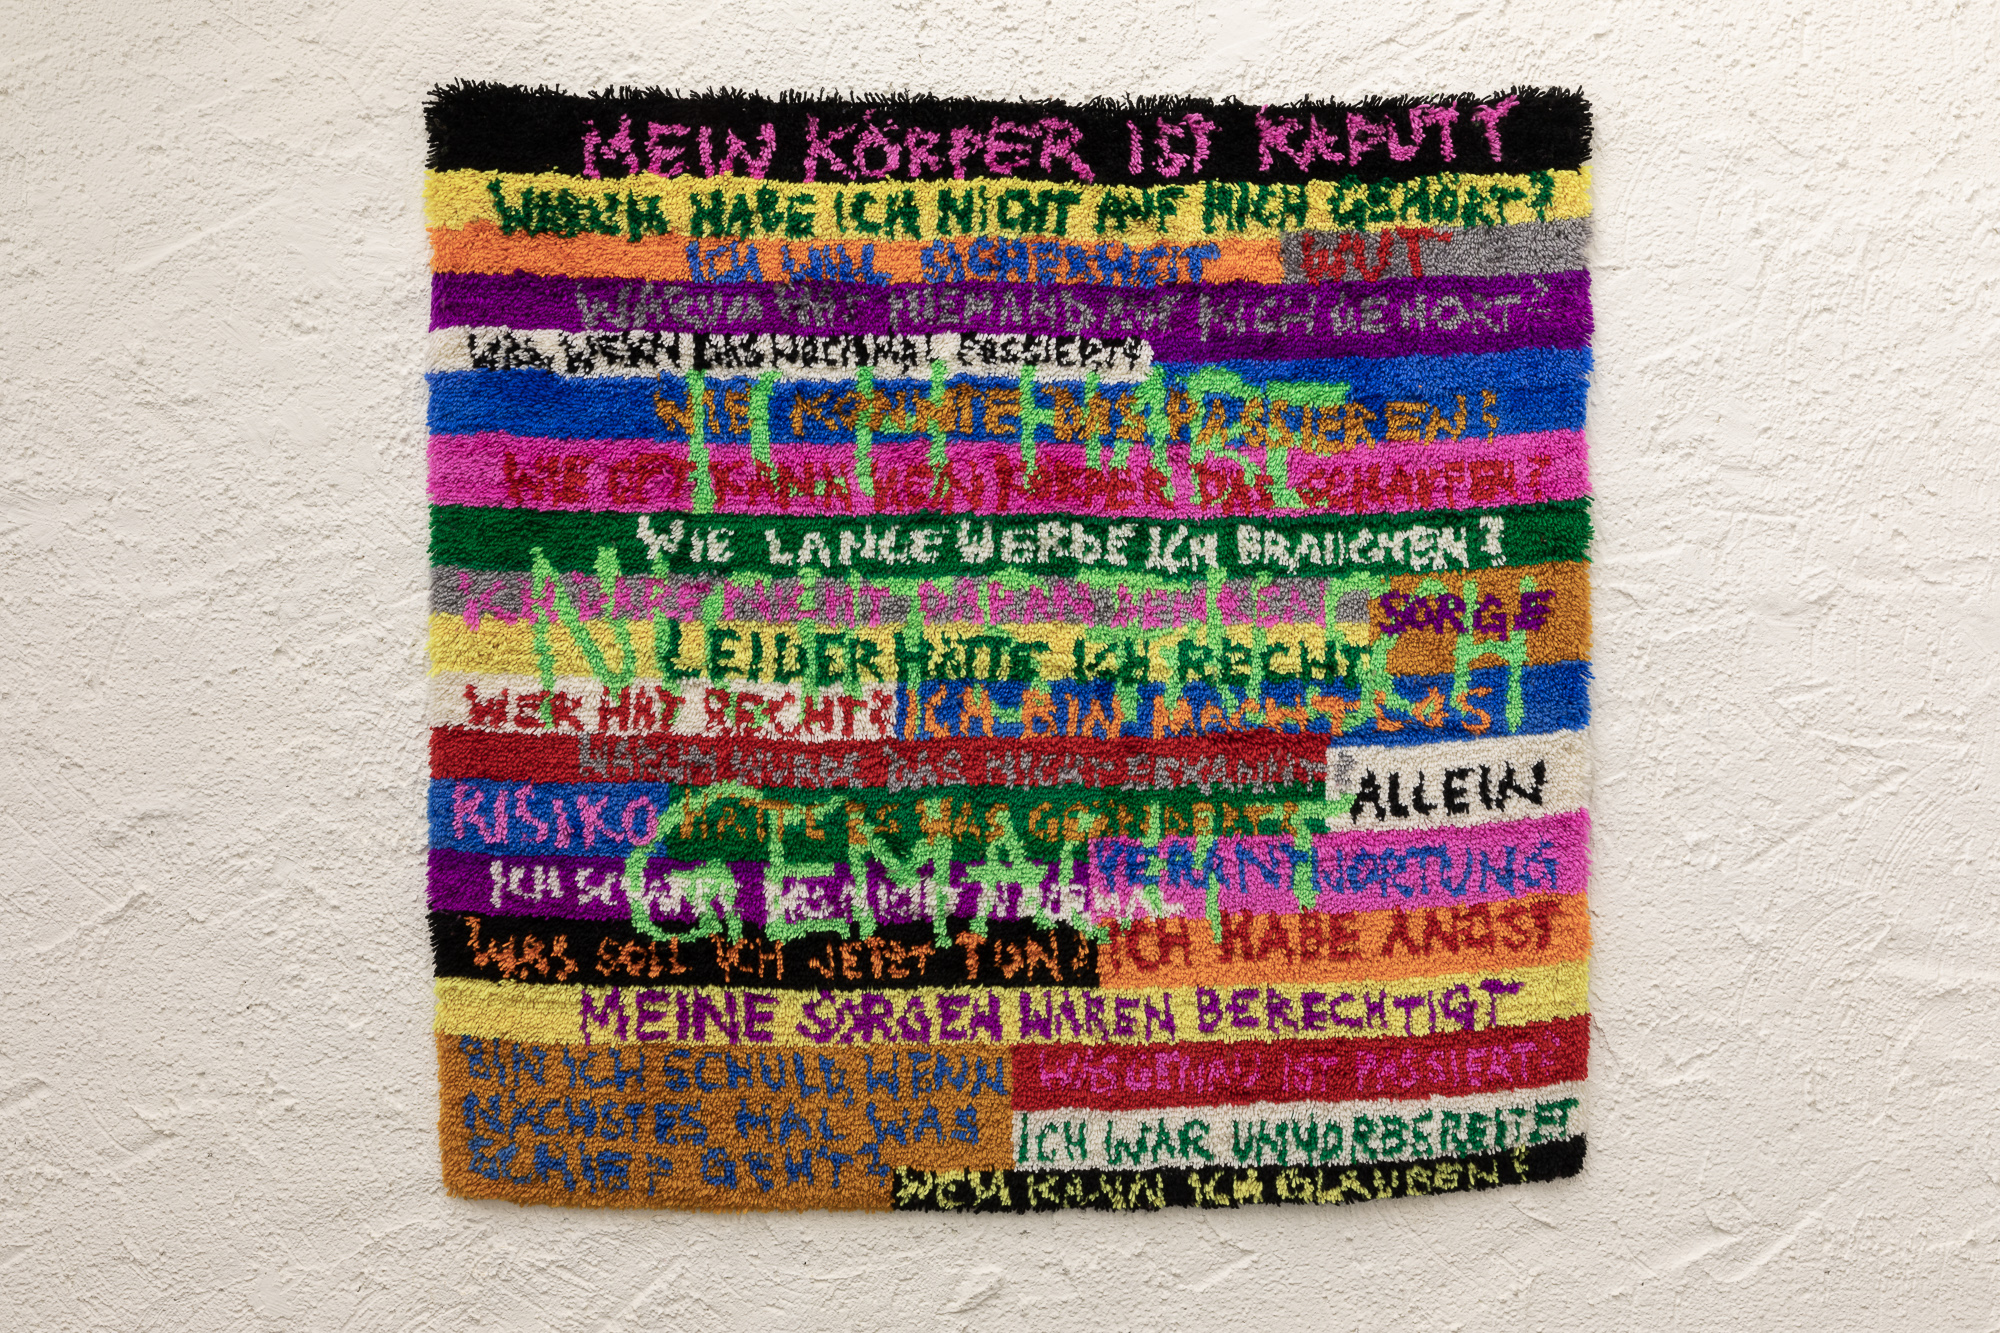 MEIN KÖRPER IST KAPUTT
WARUM HABE ICH NICHT AUF MICH GEHÖRT?
ICH WILL SICHERHEIT WUT
WARUM HAT NIEMAND AUF MICH GEHÖRT?
WAS, WENN DAS NOCHMAL PASSIERT?
WIE KONNTE DAS PASSIEREN?
WIE KANN MEIN KÖRPER DAS SCHAFFEN?
WIE LANGE WERDE ICH BRAUCHEN?
ICH DARF NICHT DARAN DENKEN
SORGE
LEIDER HATTE ICH RECHT
WER HAT RECHT? ICH BIN MACHTLOS
WARUM WURDE DAS NICHT ERKANNT?
ALLEIN
RISIKO HÄTTE ES WAS GEÄNDERT?
VERANTWORTUNG
ICH SCHAFF DAS NICHT NOCHMAL
WAS SOLL ICH JETZT TUN? ICH HABE ANGST
MEINE SORGEN WAREN BERECHTIGT
BIN ICH SCHULD, WENN
NÄCHSTES MAL WAS
SCHIEF GEHT?
WAS GENAU IST PASSIERT?
ICH WAR UNVORBEREITET
WEM KANN ICH GLAUBEN?
NATÜRLICH
GEMACHT